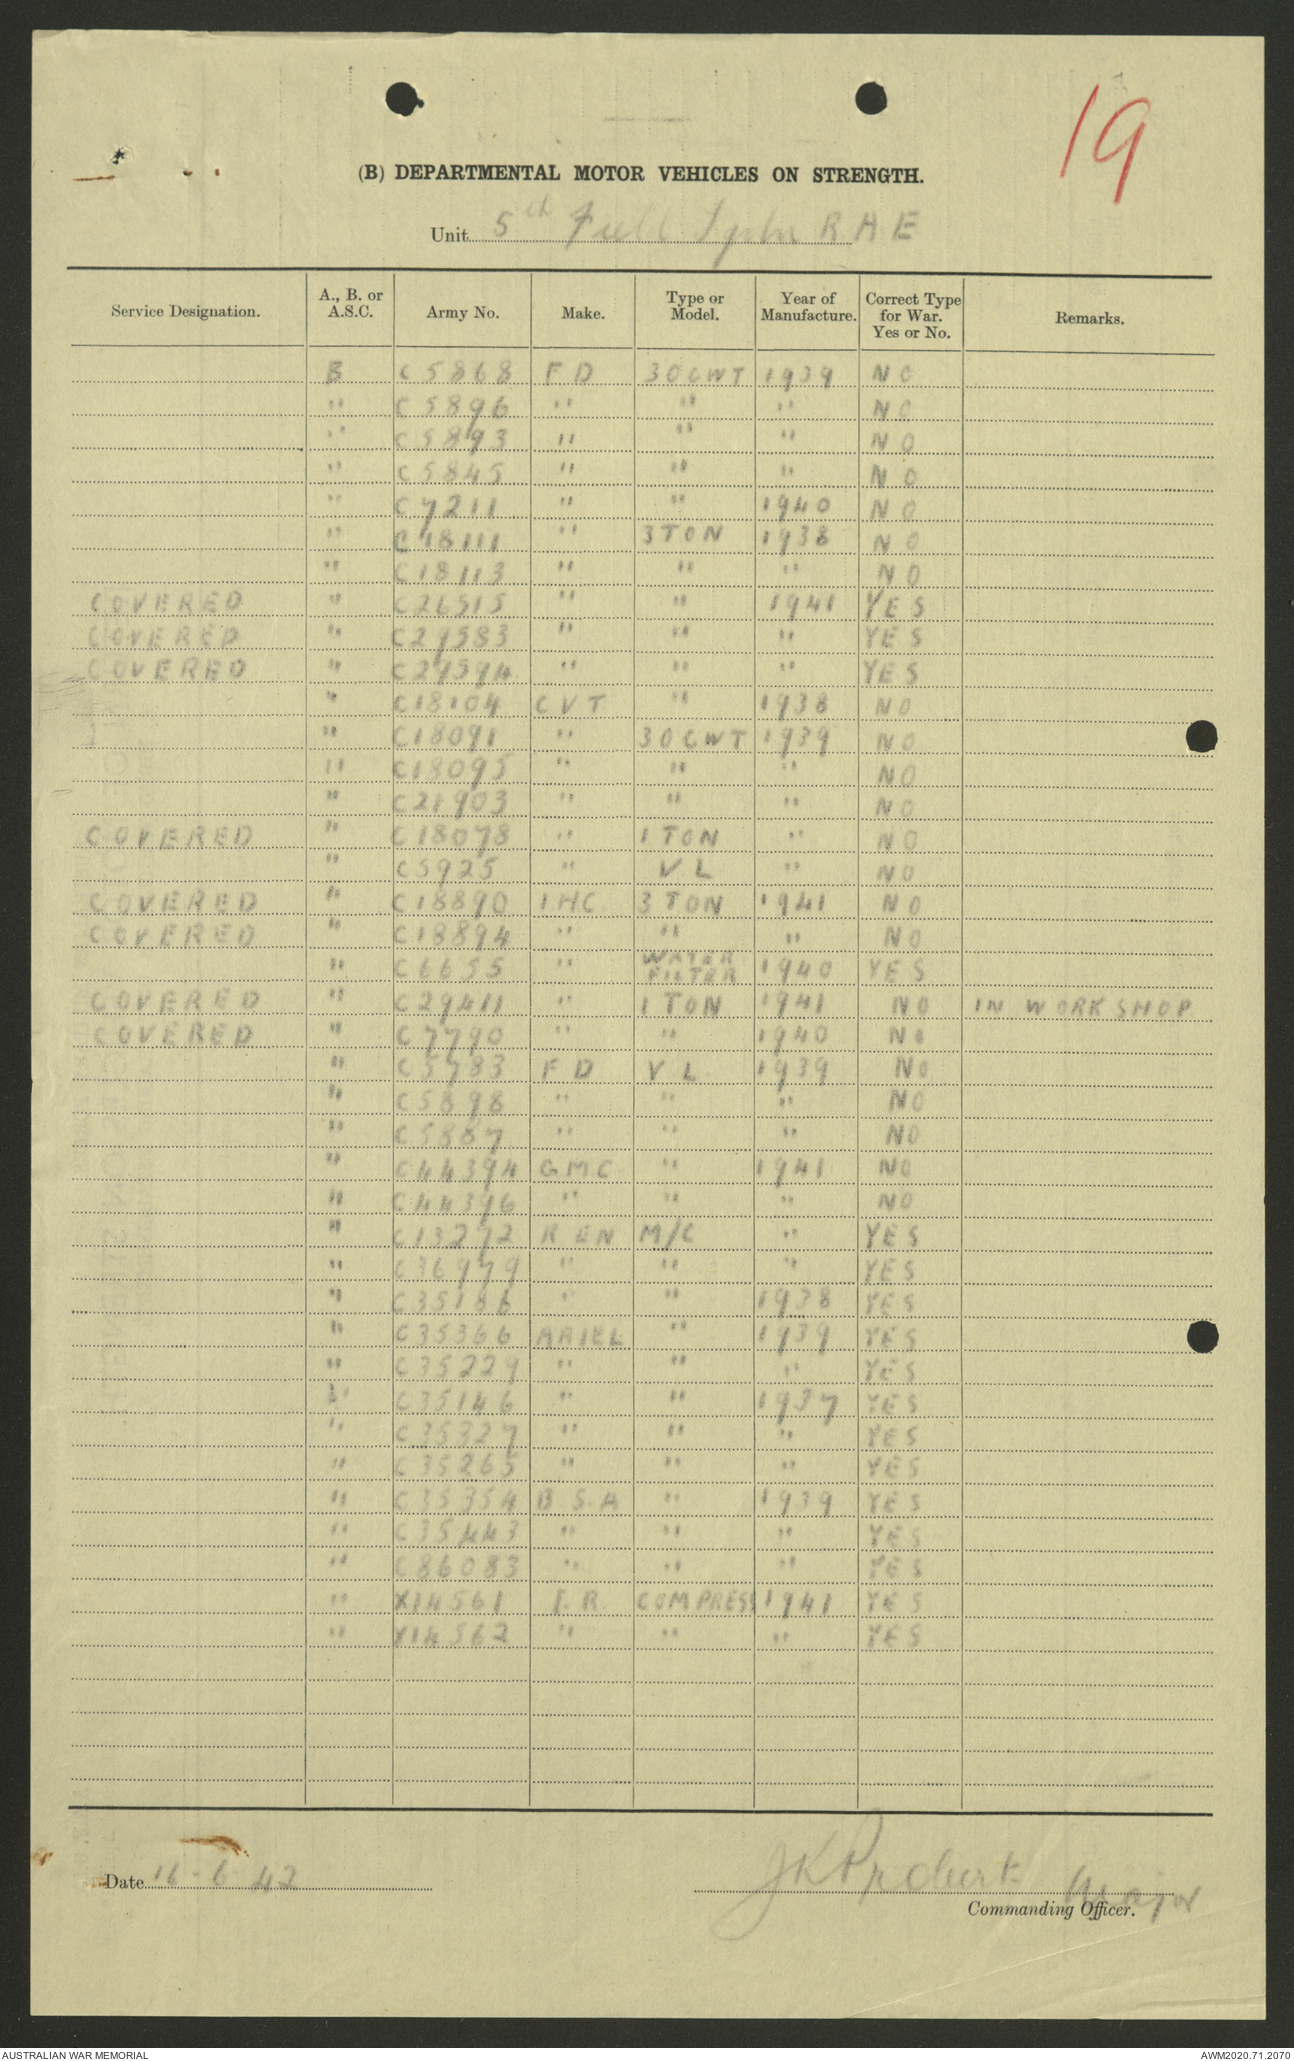 19
(B) DEPARTMENTAL MOTOR VEHICLES ON STRENGTH.
Unit 5th Field RAE
Service Designation. A., B. or A.S.C. Army No. Make. Type or Model. Year of Manufacture. Correct Type for War. Yes or No. Remarks.
B C5868 FD 30CWT 1939 NO
" C5896 " " " NO
" C5893 " " " NO
" C5845 " " " NO
" C7211 " " 1940 NO
" C18111 " 3TON 1938 NO
" C18113 " " " NO
COVERED " C26515 " " 1941 YES
COVERED " C29583 " " " YES
COVERED " C29594 " " " YES
" C18104 CVT " 1938 NO
" C18091 " 30CWT 1939 NO
" C18095 " " " NO
" C21903 " " " NO
COVERED " C18078 " 1 TON " NO
" C5925 " VL " NO
COVERED " C18890 IHC 3 TON 1941 NO
COVERED " C18894 " " " NO
" C6655 " WATER FILTER 1940 YES
COVERED " C29411 " 1 TON 1941 NO IN WORKSHOP
COVERED " C7790 " " 1940 NO
" C5783 FD VL 1939 NO
" C5898 " " " NO
" C5887 " " " NO
" C44394 GMC " 1941 NO
" C44396 " " " NO
" C13272 R EN M/C " YES
" C36979 " " " YES
" C35186 " " 1938 YES
" C35366 ARIEL " 1939 YES
" C35229 " " " YES
" C35146 " " 1937 YES
" C35327 " " " YES
" C35265 " " " YES
" C35354 B S A " 1939 YES
" C35443 " " " YES
" C86083 " " " YES
" X14561 I.R COMPRESS 1941 YES
" X14562 " " " YES
Date 16-6 42 Major
Commanding Officer.
AUSTRALIAN WAR MEMORIAL AWM2020.71.2070